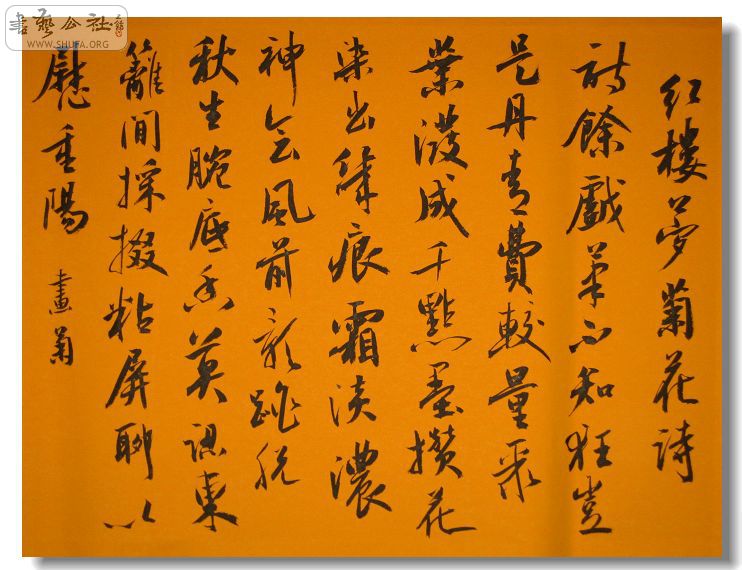 書藝公社
WWW.SHUFA.ORG
紅樓夢菊花詩
詩餘戲筆不知狂豈
是丹青費較量聚
葉潑成千點墨攢花
染出幾痕霜淡濃
神會風前影跳脫
秋生腕底香莫認東
籬間採掇粘屏聊以
慰重陽 畫菊